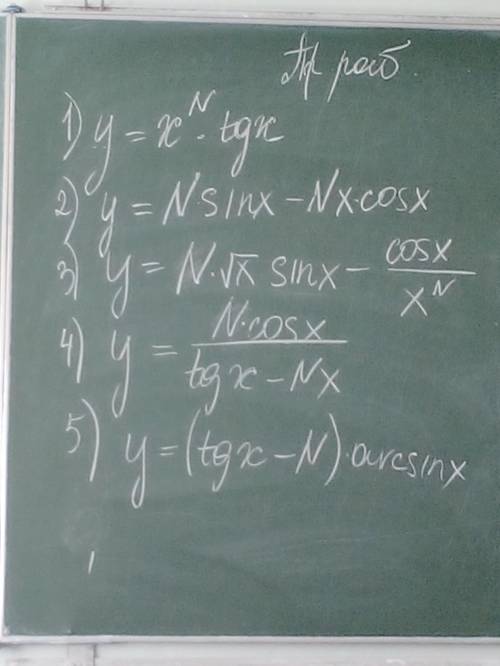 Пр раб.
1) y = x^N · tgx
2) y = N·sinx - Nx·cosx
3) y = N·√x sinx - cosx / x^N
4) y = N·cosx / tgx - Nx
5) y = (tgx - N)·arcsinx